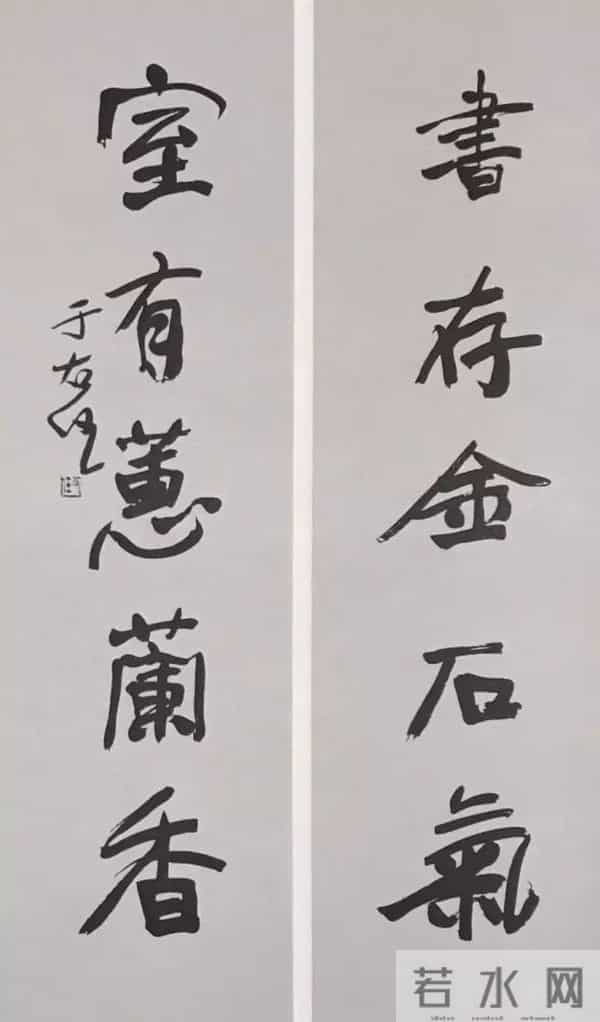 書存金石氣
室有蕙蘭香
于右任
若水网